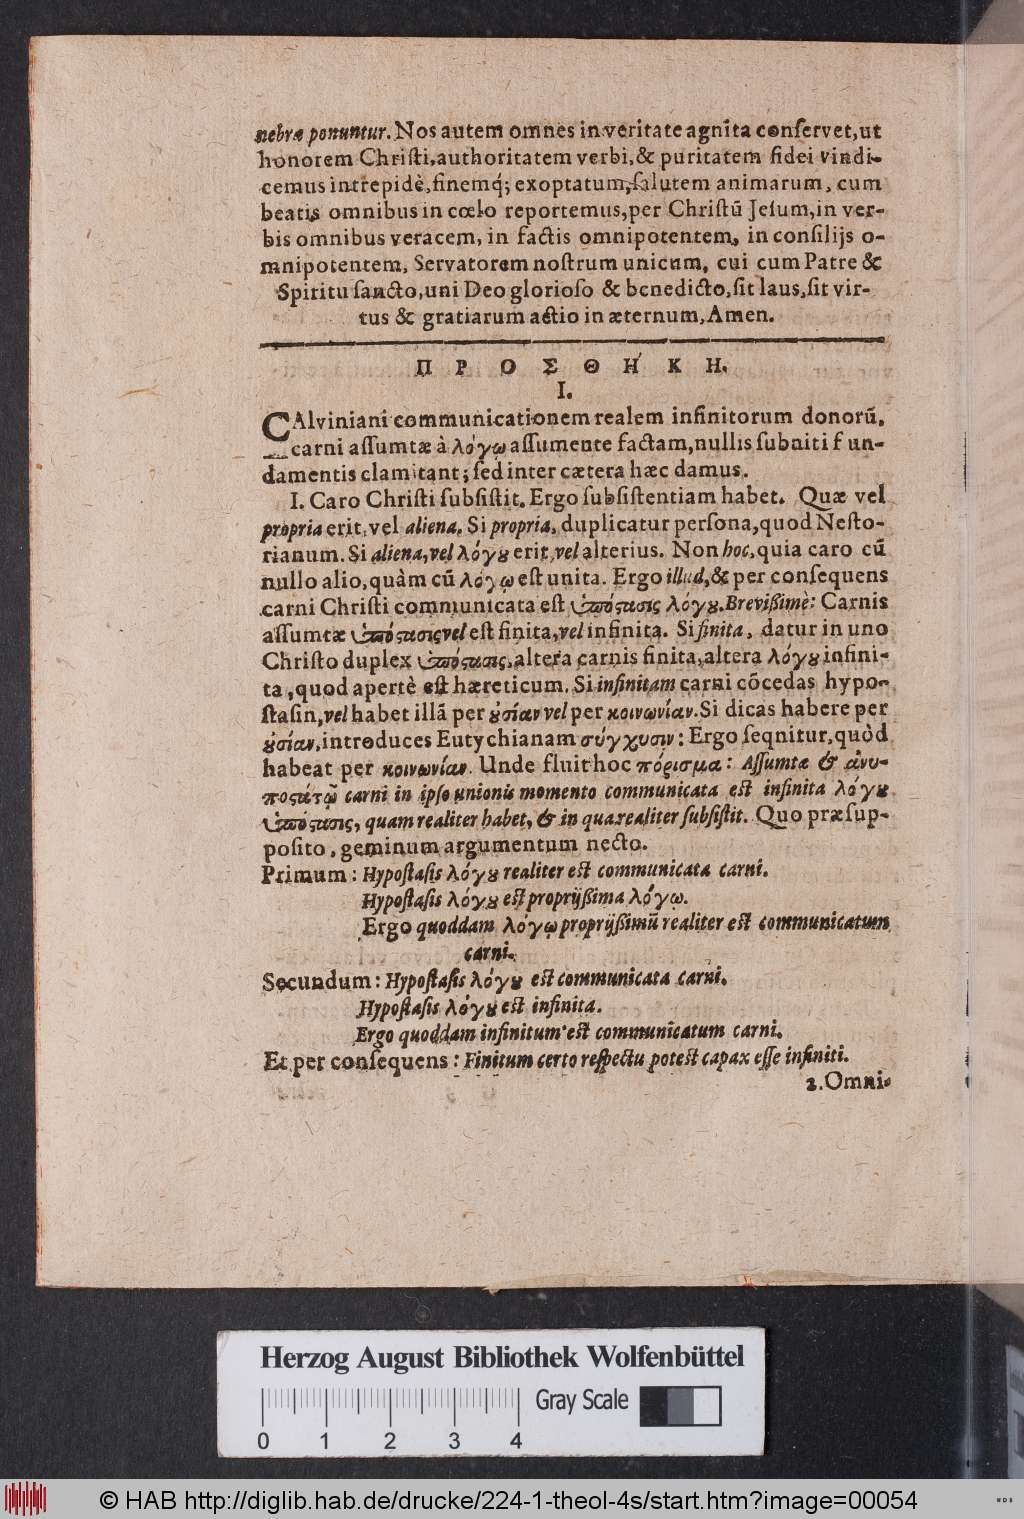 nebræ ponuntur. Nos autem omnes in veritate agnita conſervet, ut
honorem Chriſti, authoritatem verbi, & puritatem fidei vindi-
cemus intrepidè, finemq́; exoptatum, ſalutem animarum, cum
beatis omnibus in cœlo reportemus, per Chriſtū Jeſum, in ver-
bis omnibus veracem, in factis omnipotentem, in conſilijs o-
mnipotentem, Servatorem noſtrum unicum, cui cum Patre &
Spiritu ſancto, uni Deo glorioſo & benedicto, ſit laus, ſit vir-
tus & gratiarum actio in æternum, Amen.
Π Ρ Ο Σ Θ Ή Κ Η.
I.
CAlviniani communicationem realem infinitorum donorū,
carni aſſumtæ à λόγῳ aſſumente factam, nullis ſubniti f un-
damentis clamitant; ſed inter cætera hæc damus.
I. Caro Chriſti ſubſiſtit. Ergo ſubſiſtentiam habet. Quæ vel
propria erit, vel aliena. Si propria, duplicatur perſona, quod Neſto-
rianum. Si aliena, vel λόγȣ erit, vel alterius. Non hoc, quia caro cū
nullo alio, quàm cū λόγῳ eſt unita. Ergo illud, & per conſequens
carni Chriſti communicata eſt ὑπόςασις λόγȣ. Breviſſimè: Carnis
aſſumtæ ὑπόςασις vel eſt finita, vel infinita. Si finita, datur in uno
Chriſto duplex ὑπόςασις, altera carnis finita, altera λόγȣ infini-
ta, quod apertè eſt hæreticum. Si infinitam carni cōcedas hypo-
ſtaſin, vel habet illā per ȣσίαν vel per κοινωνίαν. Si dicas habere per
ȣσίαν, introduces Eutychianam σύγχυσιν: Ergo ſeqnitur, quòd
habeat per κοινωνίαν. Unde fluit hoc πόρισμα: Aſſumtæ & ἀνυ-
ποςάτῳ carni in ipſo unionis momento communicata eſt infinita λόγȣ
ὑπόςασις, quam realiter habet, & in qua realiter ſubſiſtit. Quo præſup-
poſito, geminum argumentum necto.
Primum: Hypoſtaſis λόγȣ realiter eſt communicata carni.
Hypoſtaſis λόγȣ eſt proprijſſima λόγῳ.
Ergo quoddam λόγῳ proprijſſimū realiter eſt communicatum
carni.
Secundum: Hypoſtaſis λόγȣ eſt communicata carni.
Hypoſtaſis λόγȣ eſt infinita.
Ergo quoddam infinitum eſt communicatum carni.
Et per conſequens: Finitum certo reſpectu poteſt capax eſſe infiniti.
2. Omni-
Herzog August Bibliothek Wolfenbüttel
Gray Scale
0 1 2 3 4
© HAB http://diglib.hab.de/drucke/224-1-theol-4s/start.htm?image=00054